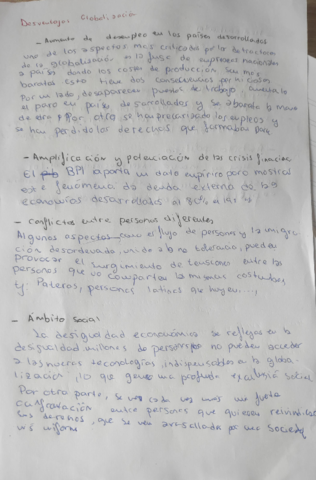 Desventajas Globalización
- Aumento de desempleo en los países desarrollados
uno de los aspectos más criticados por los detractores
de la globalización es la fuga de empresas nacionales
a países donde los costes de producción son más
baratos. Esto tiene dos consecuencias
Por un lado, desaparecen puestos de trabajo, aumenta
el paro en países desarrollados y se abarata la mano
de obra y Por otra se han precarizado los empleos y
se han perdido los derechos que formaban parte
- Amplificación y potenciación de las crisis financieras
El BPI aporta un dato empírico para mostrar
este fenómeno la deuda externa de las
economías desarrolladas
- Conflictos entre personas diferentes
Algunos aspectos como el flujo de personas y la inmigra
ción desordenada, unido a la no tolerancia, pueden
provocar el surgimiento de tensiones entre las
personas que no comparten las mismas costumbres
Ej Pateras, personas latinas que huyen...,
- Ámbito social
La desigualdad económica se refleja en la
desigualdad millones de personas no pueden acceder
a las nuevas tecnologías, indispensables en la globa-
lización, lo que genera una profunda exclusión social
Por otra parte, se ve cada vez más una fuerte
confrontación entre personas que quieren reivindicar
sus derechos, que se ven por una sociedad